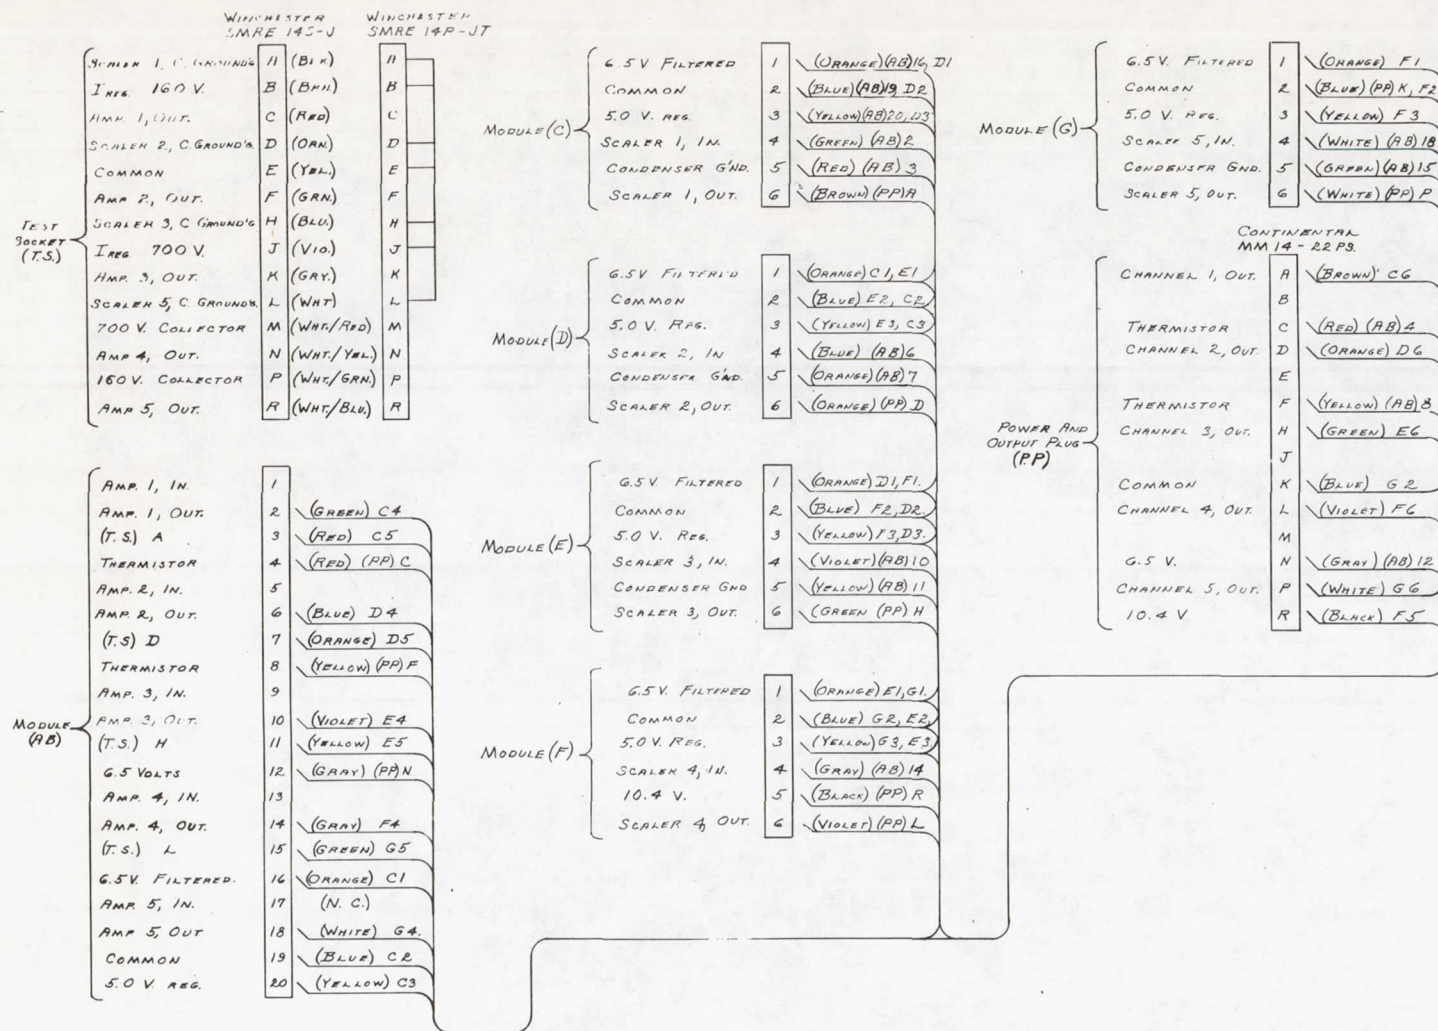 WINCHESTER
SMRE 14S-J
WINCHESTER
SMRE 14P-JT
TEST
SOCKET
(T.S.)
SCALER 1, C. GROUND'G A (BLK) A
I REG. 160 V. B (BRN.) B
AMP. 1, OUT. C (RED) C
SCALER 2, C. GROUND'G. D (ORN.) D
COMMON E (YEL.) E
AMP 2, OUT. F (GRN.) F
SCALER 3, C GROUND'G H (BLU.) H
I REG. 700 V. J (VIO.) J
AMP. 3, OUT. K (GRY.) K
SCALER 5, C. GROUND'G. L (WHT) L
700 V. COLLECTOR M (WHT./RED) M
AMP 4, OUT. N (WHT./YEL.) N
160 V. COLLECTOR P (WHT./GRN.) P
AMP 5, OUT. R (WHT./BLU.) R
MODULE
(AB)
AMP. 1, IN. 1
AMP. 1, OUT. 2 (GREEN) C4
(T.S.) A 3 (RED) C5
THERMISTOR 4 (RED) (PP) C
AMP. 2, IN. 5
AMP. 2, OUT. 6 (BLUE) D4
(T.S) D 7 (ORANGE) D5
THERMISTOR 8 (YELLOW) (PP) F
AMP. 3, IN. 9
AMP. 3, OUT. 10 (VIOLET) E4
(T.S.) H 11 (YELLOW) E5
6.5 VOLTS 12 (GRAY) (PP) N
AMP. 4, IN. 13
AMP. 4, OUT. 14 (GRAY) F4
(T.S.) L 15 (GREEN) G5
6.5V. FILTERED. 16 (ORANGE) C1
AMP. 5, IN. 17 (N.C.)
AMP 5, OUT 18 (WHITE) G4.
COMMON 19 (BLUE) C2
5.0 V. REG. 20 (YELLOW) C3
MODULE (C)
6.5V FILTERED 1 (ORANGE)(AB)16, D1
COMMON 2 (BLUE)(AB)19, D2
5.0 V. REG. 3 (YELLOW)(AB)20, D3
SCALER 1, IN. 4 (GREEN) (AB) 2
CONDENSER G'ND. 5 (RED) (AB) 3
SCALER 1, OUT. 6 (BROWN) (PP) A
MODULE (D)
6.5V FILTERED 1 (ORANGE) C1, E1
COMMON 2 (BLUE) E2, C2
5.0 V. REG. 3 (YELLOW) E3, C3
SCALER 2, IN 4 (BLUE) (AB) 6
CONDENSER G'ND. 5 (ORANGE) (AB) 7
SCALER 2, OUT. 6 (ORANGE) (PP) D
MODULE (E)
6.5V FILTERED 1 (ORANGE) D1, F1.
COMMON 2 (BLUE) F2, D2.
5.0 V. REG. 3 (YELLOW) F3, D3.
SCALER 3, IN. 4 (VIOLET) (AB) 10
CONDENSER GND 5 (YELLOW) (AB) 11
SCALER 3, OUT. 6 (GREEN (PP) H
MODULE (F)
6.5V. FILTERED 1 (ORANGE) E1, G1.
COMMON 2 (BLUE) G2, E2
5.0 V. REG. 3 (YELLOW) G3, E3
SCALER 4, IN. 4 (GRAY) (AB) 14
10.4 V. 5 (BLACK) (PP) R
SCALER 4, OUT. 6 (VIOLET) (PP) L
MODULE (G)
6.5V. FILTERED 1 (ORANGE) F1
COMMON 2 (BLUE) (PP) K, F2
5.0 V. REG. 3 (YELLOW) F3
SCALER 5, IN. 4 (WHITE) (AB) 18
CONDENSER GND. 5 (GREEN) (AB) 15
SCALER 5, OUT. 6 (WHITE) (PP) P
CONTINENTAL
MM 14 - 22 PS.
POWER AND
OUTPUT PLUG
(P.P)
CHANNEL 1, OUT. A (BROWN) C6
B
THERMISTOR C (RED) (AB) 4
CHANNEL 2, OUT. D (ORANGE) D6
E
THERMISTOR F (YELLOW) (AB) 8
CHANNEL 3, OUT. H (GREEN) E6
J
COMMON K (BLUE) G2
CHANNEL 4, OUT. L (VIOLET) F6
M
6.5 V. N (GRAY) (AB) 12
CHANNEL 5, OUT. P (WHITE) G6
10.4 V R (BLACK) F5